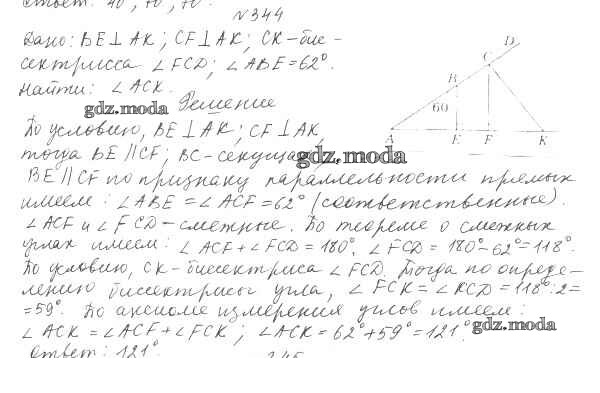 Ответ: 40°, 70°, 70°.
№344
Дано: BE⊥AK; CF⊥AK; CK-бис-
сектрисса ∠FCD; ∠ABE=62°.
Найти: ∠ACK.
gdz.moda Решение
По условию, BE⊥AK; CF⊥AK,
тогда BE∥CF; BC-секущая
gdz.moda
BE∥CF по признаку параллельности прямых
имеем: ∠ABE=∠ACF=62° (соответственные).
∠ACF и ∠FCD-смежные. По теореме о смежных
углах имеем: ∠ACF+∠FCD=180°. ∠FCD=180°-62°=118°.
По условию, CK-биссектриса ∠FCD. Тогда по опреде-
лению биссектрисы угла, ∠FCK=∠KCD=118°:2=
=59°. По аксиоме измерения углов имеем:
gdz.moda
∠ACK=∠ACF+∠FCK; ∠ACK=62°+59°=121°.
Ответ: 121°.
D
C
B
60
A E F K